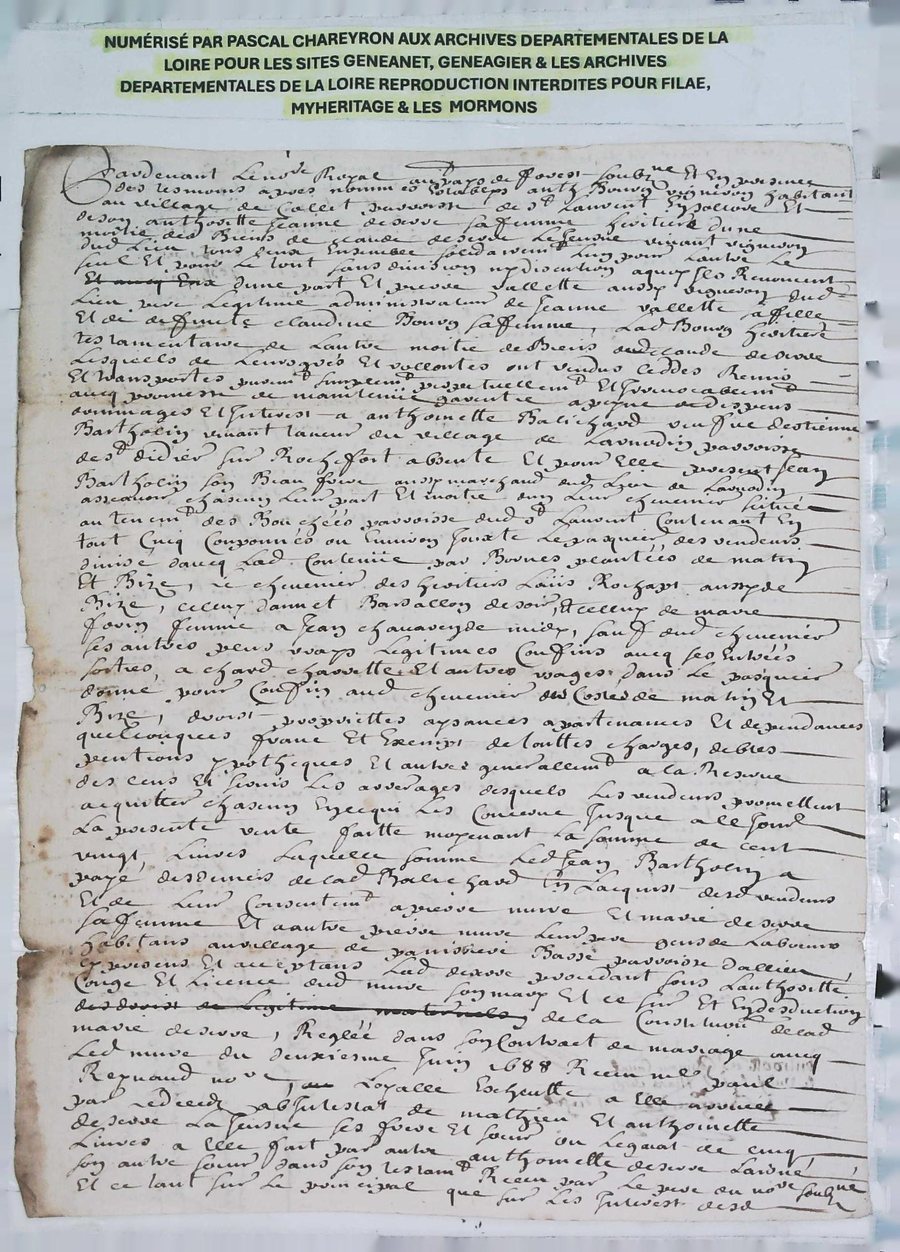 NUMÉRISÉ PAR PASCAL CHAREYRON AUX ARCHIVES DEPARTEMENTALES DE LA
LOIRE POUR LES SITES GENEANET, GENEAGIER & LES ARCHIVES
DEPARTEMENTALES DE LA LOIRE REPRODUCTION INTERDITES POUR FILAE,
MYHERITAGE & LES MORMONS
Pardevant Le no.re Royal au pays de forest soubz.ne Et En presence
des tesmoins apres nommés anth. Bouvy vigneron habitant
au village de Collet parroisse de s.t Laurent Et
de son authoritte Jeanne deserve sa femme heritiere dune
moitie des Biens de deserve vivant vigneron
dud Lieu tous deux Ensemble solidairem.t Lun pour Lautre Le
seul Et pour Le tout sans division ny discution aquoy ils Renoncent
dune part Et pierre vallette aussy vigneron dud
Lieu pere Legitime administrateur de Jeanne vallette sa fille
Et de deffuncte claudine Bouvy sa femme, Lad Bouvy heritiere
testamentaire de Lautre moitie de Biens dud claude deserve
Lesquels de Leurs grés Et vollontes ont vendus ceddes Remis
Et transportes purem.t simplem.t perpetuellem.t Et Irrevocablem.t
avecq promesse de maintenir garentie a peyne de despens
dommages Et Interest a anthoinette Balichard veufve destienne
Barthollin vivant taneur du village de Lavuodin parroisse
de s.t didier sur Rochefort absente Et pour Elle present Jean
Bartholin son Beau frere aussy marchand dud Lieu de Lavuodin
assavoir chascun Leur part Et moitie dun Leur chenevier scittué
au tenem.t des Bouchées parroisse dud s.t Laurent Contenant En
tout Cinq Couponnées ou Environ Jouxte Le pasquier des vendeurs
divisé davecq Lad Contenüe par Bornes plantées de matin
Et Bize, Le chenevier des heritiers Laüis Rochapt aussy de
Bize, celluy dannet Barsallon de soir, Et celluy de marie
forin femme a Jean de midy, sauf dud chenevier
ses autres plus vrays Legitimes Confins avecq ses Entrées
sorties, a chard charrette Et autres uzages dans Le pasquier
donné pour Confin aud chenevier de matin Et
Bize, droist proprietes aysances apartenances Et dependances
quelconques franc Et Exempt de touttes charges, debtes
pentions ypotheques Et autres generallem.t a la Reserve
des cens Et servis Les arrerages desquels Les vendeurs promettent
acquitter chascun En ce qui Les Concerne Jusque a ce Jourd
La presente vente faitte moyenant La somme de cent
vingt Livres Laquelle somme Led Jean Bartholin a
payé des deniers de lad Balichard En Lacquist desd vendeurs
Et de Leur Consentem.t a pierre mure Et marie deserve
sa femme Et a autre pierre mure Leur pere gens de Labeurs
habitans au village de Basse parroisse dallieu
Cy presens Et acceptans Lad deserve procedant sous Lauthoritté
Conge Et Licence dud mure son mary Et ce sur Et En desduction
des droist de Legitime maternelle de la Constitution de lad
marie deserve, Reglée dans son Contract de mariage avecq
Led mure du deuxiesme Juin 1688 Receu m.e paul
Reynaud no.re Lo Escheutte a Elle arrivée
par Le deceds abIntestat de mathieu Et anthoinette
deserve La Jeusne ses frere Et soeur ou Legat de cinq
Livres a Elle fait par autre anthoinette deserve Laisné
son autre soeur dans son testam.t Receu par Le pere du no.re soubz.né
Et ce tant sur Le principal que sur Les Interest desd